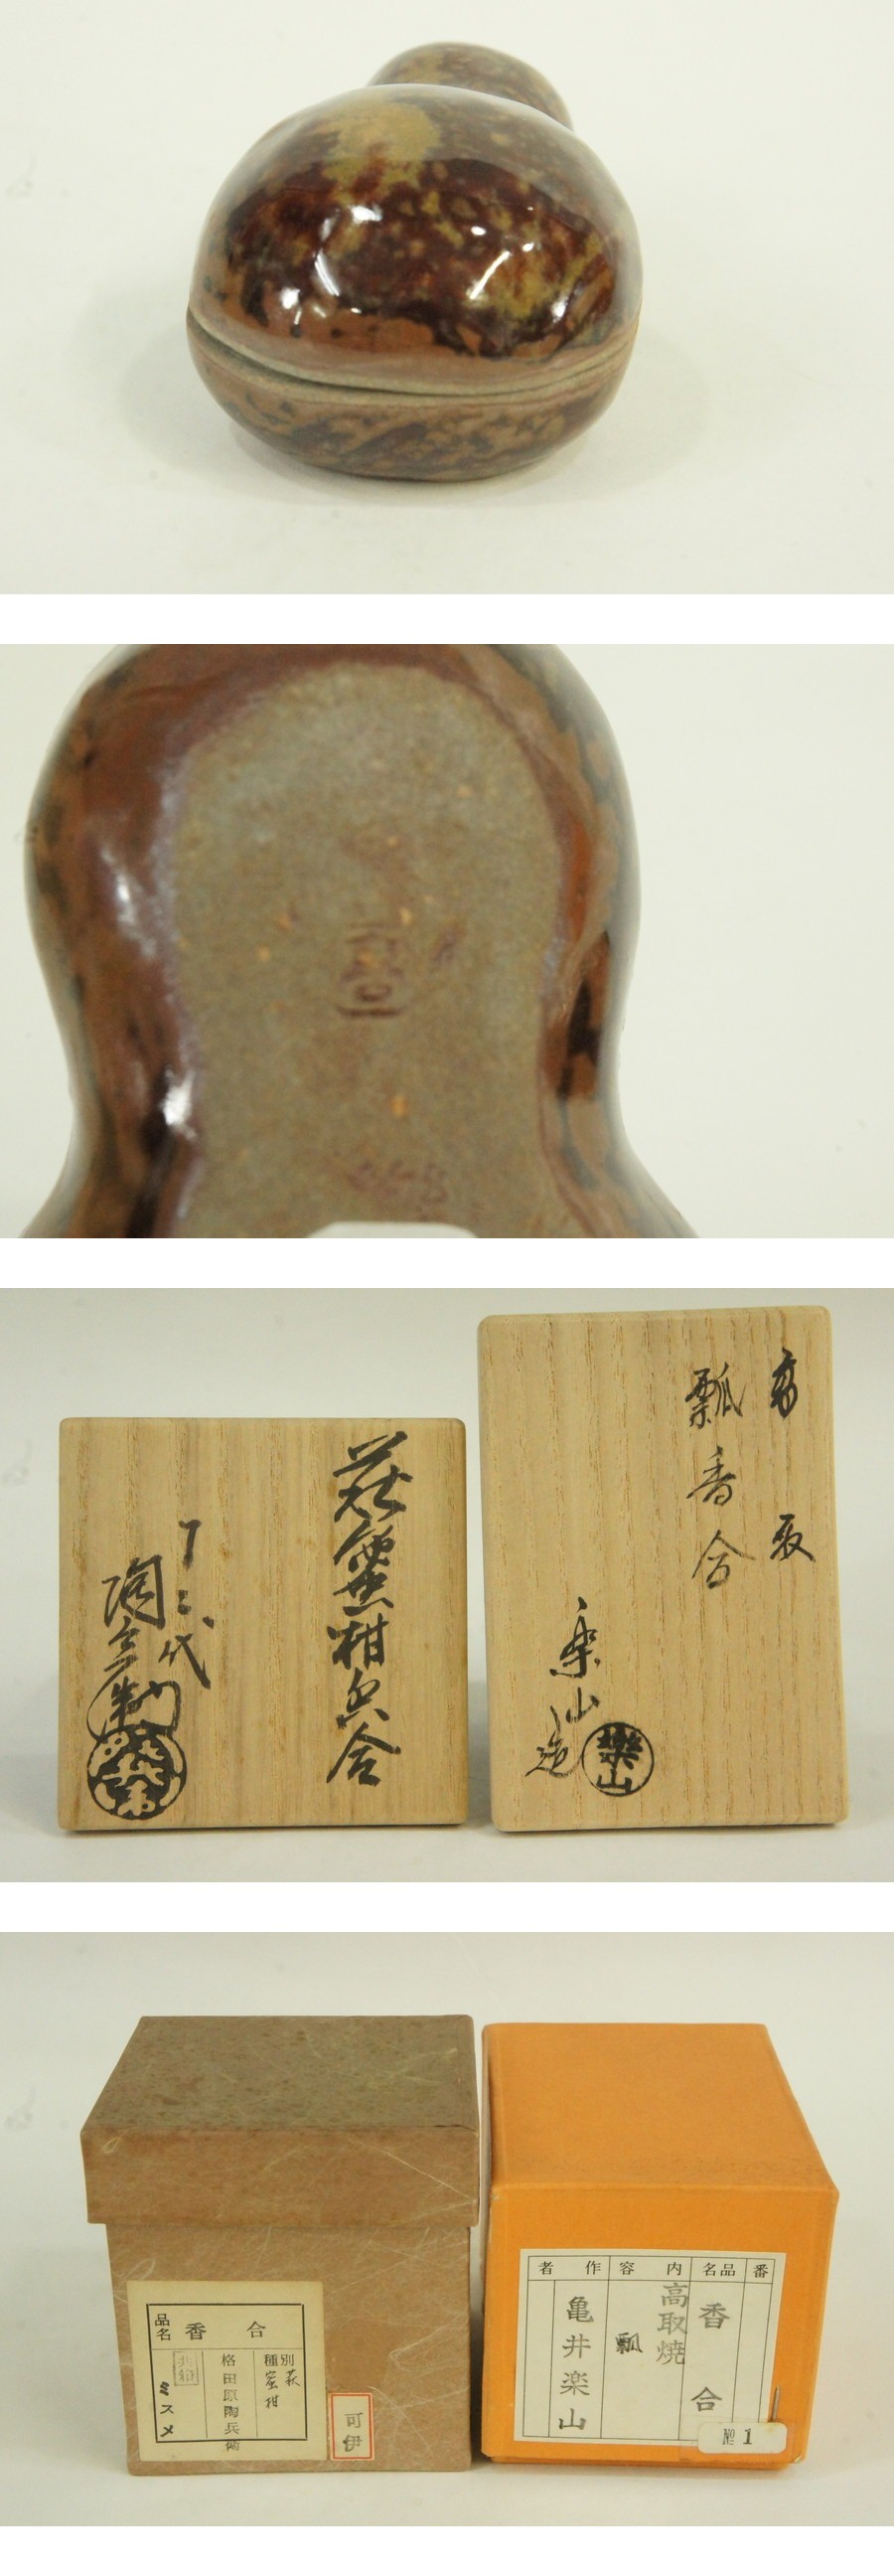 高取
瓢香合
楽山造
樂山
萩蜜柑香合
十三代
陶兵衛
品名 香合
種別 萩 蜜柑
田原陶兵衛
共箱
ミスメ
可伊
番
品名 香合
内容 高取焼 瓢
作者 亀井楽山
№1